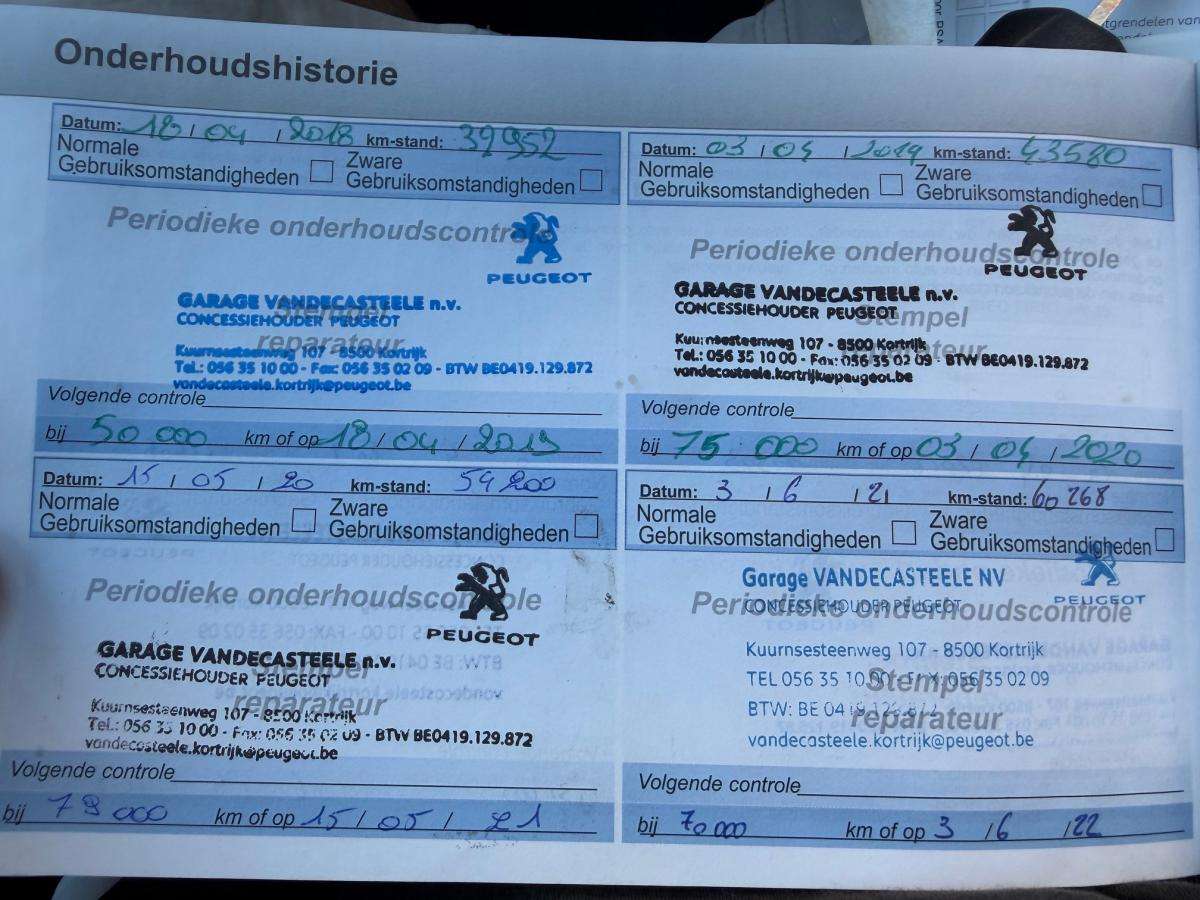 Onderhoudshistorie
Datum: 18 / 04 / 2018 km-stand: 39952
Normale
Gebruiksomstandigheden
Zware
Gebruiksomstandigheden
Periodieke onderhoudscontrole
PEUGEOT
GARAGE VANDECASTEELE n.v.
CONCESSIEHOUDER PEUGEOT
Stempel
reparateur
Kuurnsesteenweg 107 - 8500 Kortrijk
Tel.: 056 35 10 00 - Fax: 056 35 02 09 - BTW BE0419.129.872
vandecasteele.kortrijk@peugeot.be
Volgende controle
bij 50 000 km of op 18 / 04 / 2019
Datum: 03 / 04 / 2019 km-stand: 43580
Normale
Gebruiksomstandigheden
Zware
Gebruiksomstandigheden
Periodieke onderhoudscontrole
PEUGEOT
GARAGE VANDECASTEELE n.v.
CONCESSIEHOUDER PEUGEOT
Stempel
reparateur
Kuurnsesteenweg 107 - 8500 Kortrijk
Tel.: 056 35 10 00 - Fax: 056 35 02 09 - BTW BE0419.129.872
vandecasteele.kortrijk@peugeot.be
Volgende controle
bij 75 000 km of op 03 / 04 / 2020
Datum: 15 / 05 / 20 km-stand: 54200
Normale
Gebruiksomstandigheden
Zware
Gebruiksomstandigheden
Periodieke onderhoudscontrole
PEUGEOT
GARAGE VANDECASTEELE n.v.
CONCESSIEHOUDER PEUGEOT
Stempel
reparateur
Kuurnsesteenweg 107 - 8500 Kortrijk
Tel.: 056 35 10 00 - Fax: 056 35 02 09 - BTW BE0419.129.872
vandecasteele.kortrijk@peugeot.be
Volgende controle
bij 79 000 km of op 15 / 05 / 21
Datum: 3 / 6 / 21 km-stand: 60 268
Normale
Gebruiksomstandigheden
Zware
Gebruiksomstandigheden
Garage VANDECASTEELE NV
PEUGEOT
Periodieke onderhoudscontrole
CONCESSIEHOUDER PEUGEOT
Kuurnsesteenweg 107 - 8500 Kortrijk
Stempel
TEL 056 35 10 00 - FAX: 056 35 02 09
BTW: BE 0419.129.872
reparateur
vandecasteele.kortrijk@peugeot.be
Volgende controle
bij 70 000 km of op 3 / 6 / 22